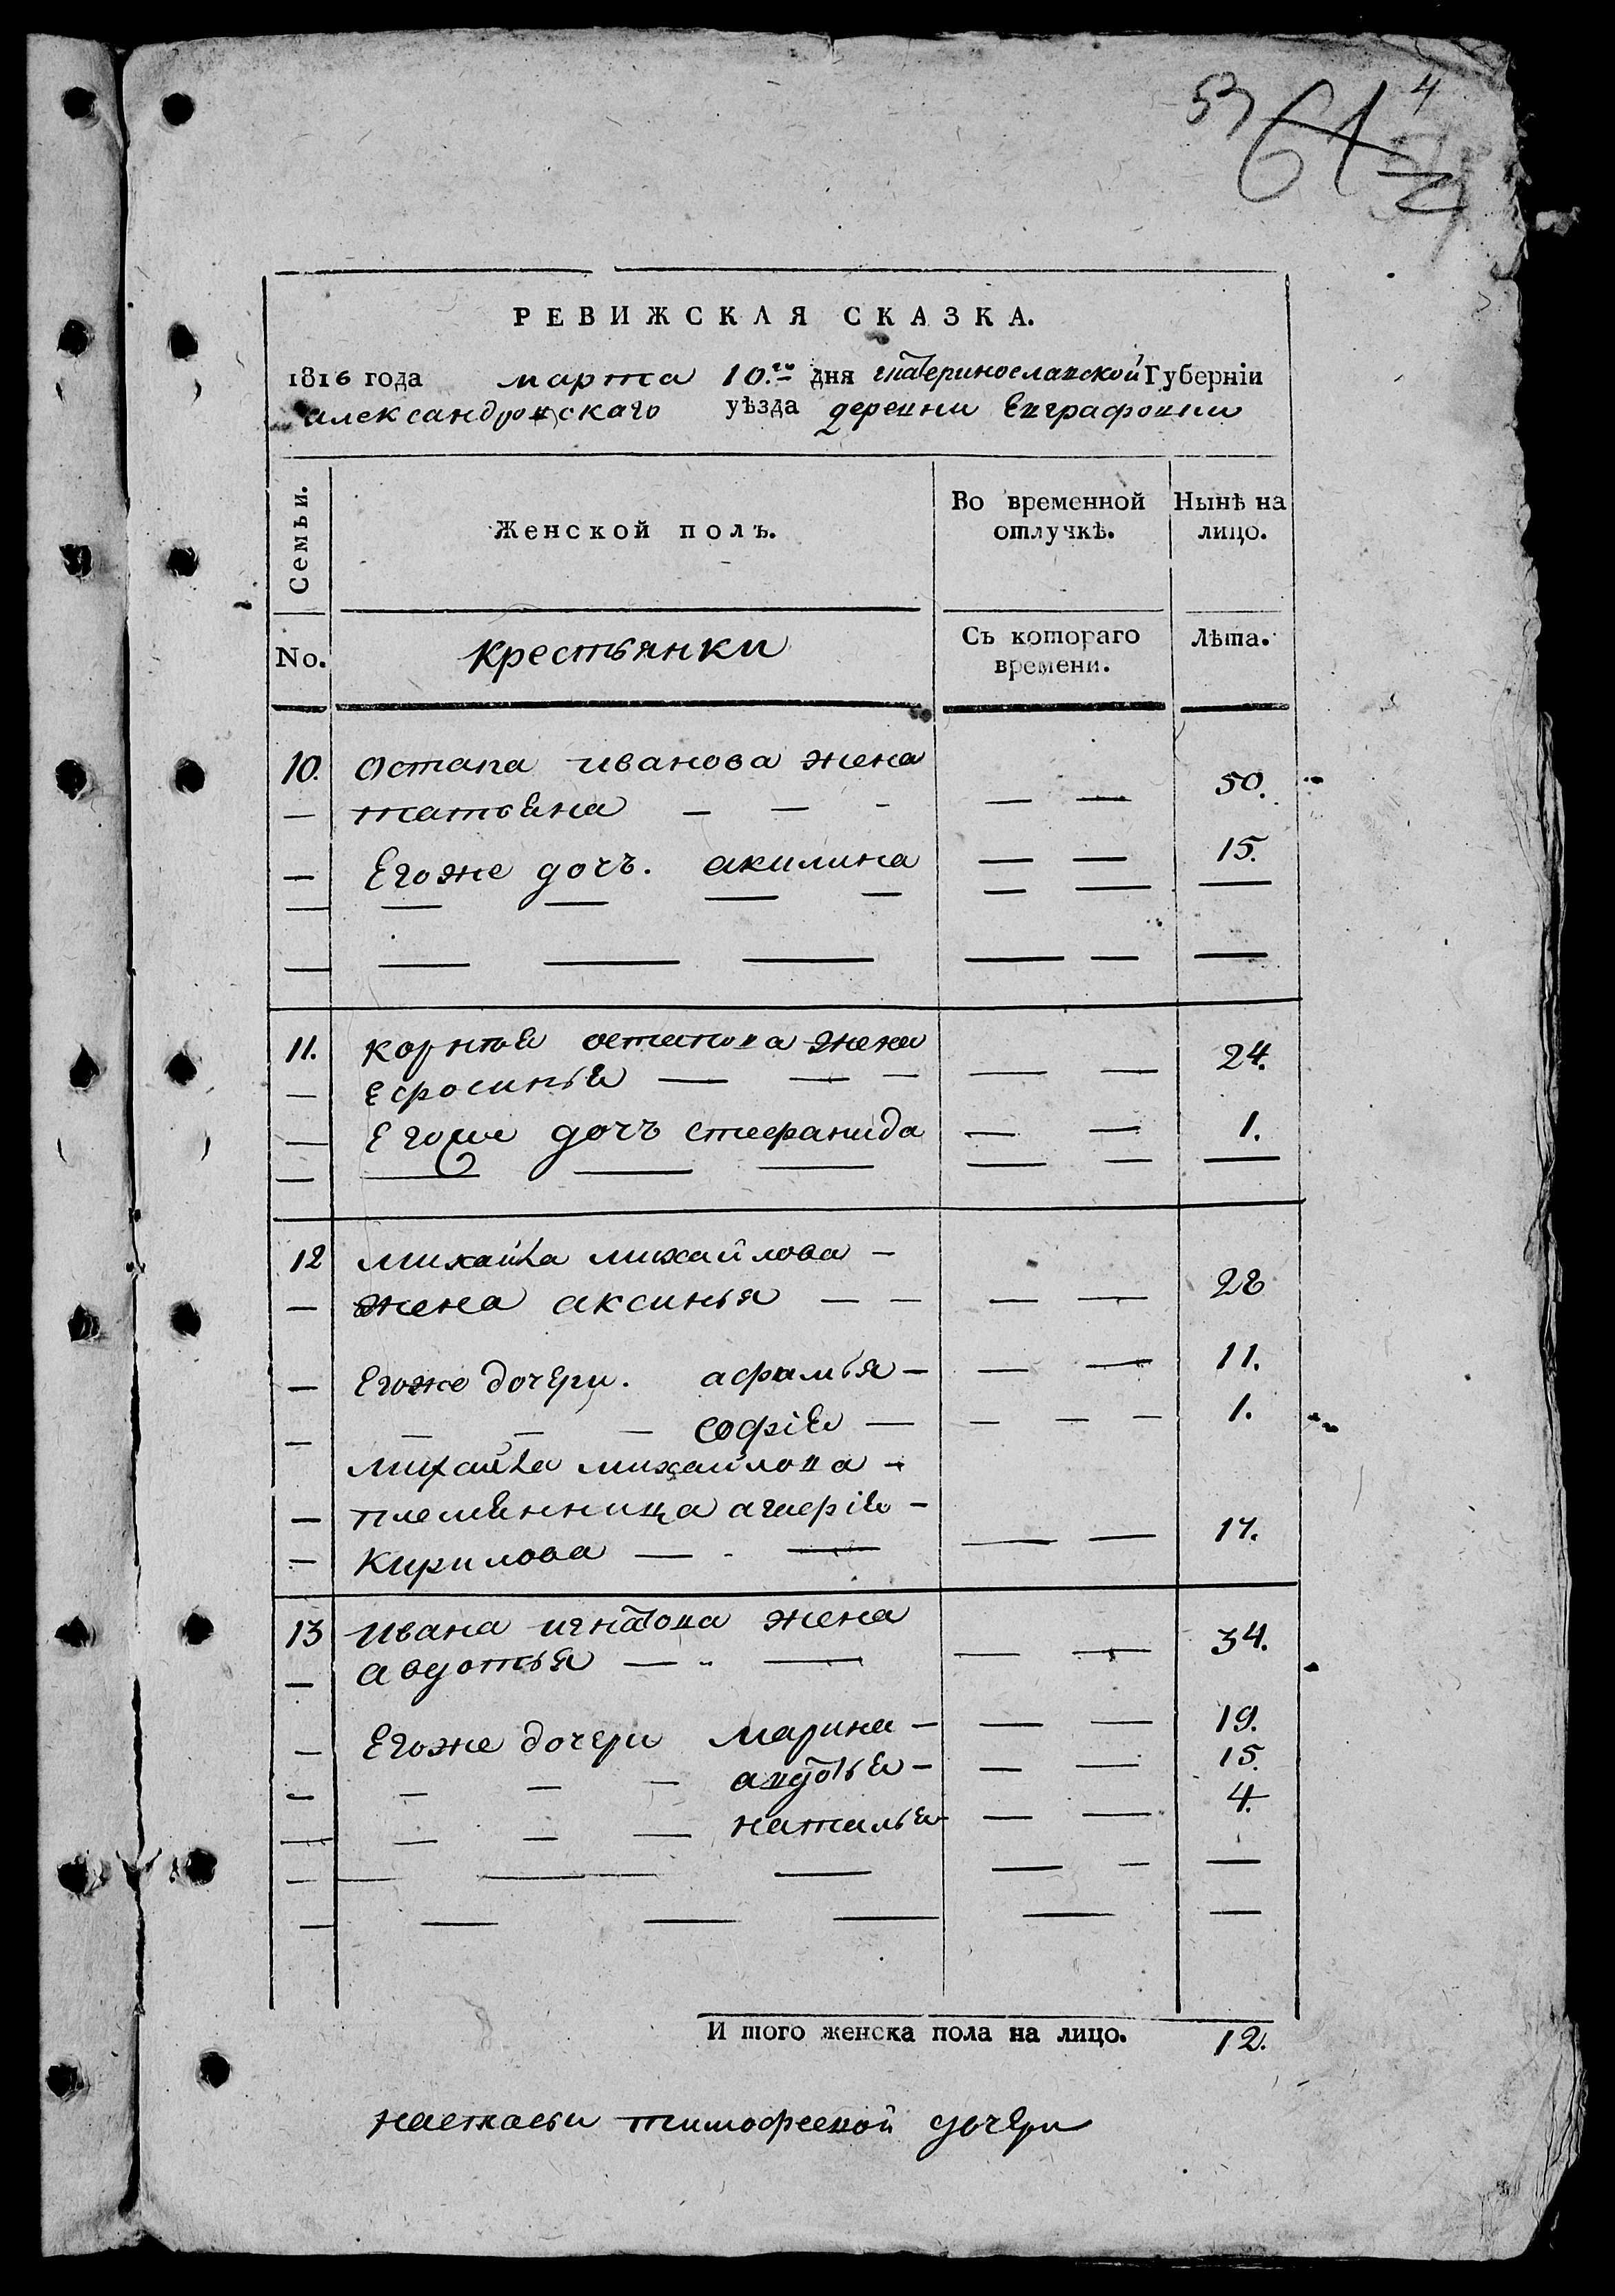 53 61 4
РЕВИЖСКАЯ СКАЗКА.
1816 года марта 10.го дня екатеринославской Губерніи
александровскаго уѣзда деревни Евграфовки
Семьи. Женской полъ. Во временной отлучкѣ. Нынѣ на лицо.
No. крестьянки Съ котораго времени. Лѣта.
10. остапа иванова жена
— татьяна — — - — — 50.
— Егоже дочъ. акилина — — 15.
11. корнея остапова жена
— ефросинья — — — — — 24.
— Егоже дочъ стефанида — — 1.
12 михайла михайлова —
— жена аксинья — — — — 28
— Егоже дочери. афимья — — — 11.
— — — — софія — — — — 1.
михайла михайлова —
— племянница агафія —
— Кирилова — - — — — 17.
13 Ивана игнатова жена
— авдотья — - — — — 34.
— Егоже дочери марина — — — 19.
— — — — авдотья — — — 15.
— — — — наталья — — — 4.
И того женска пола на лицо. 12.
настасьи тимофеевой дочери